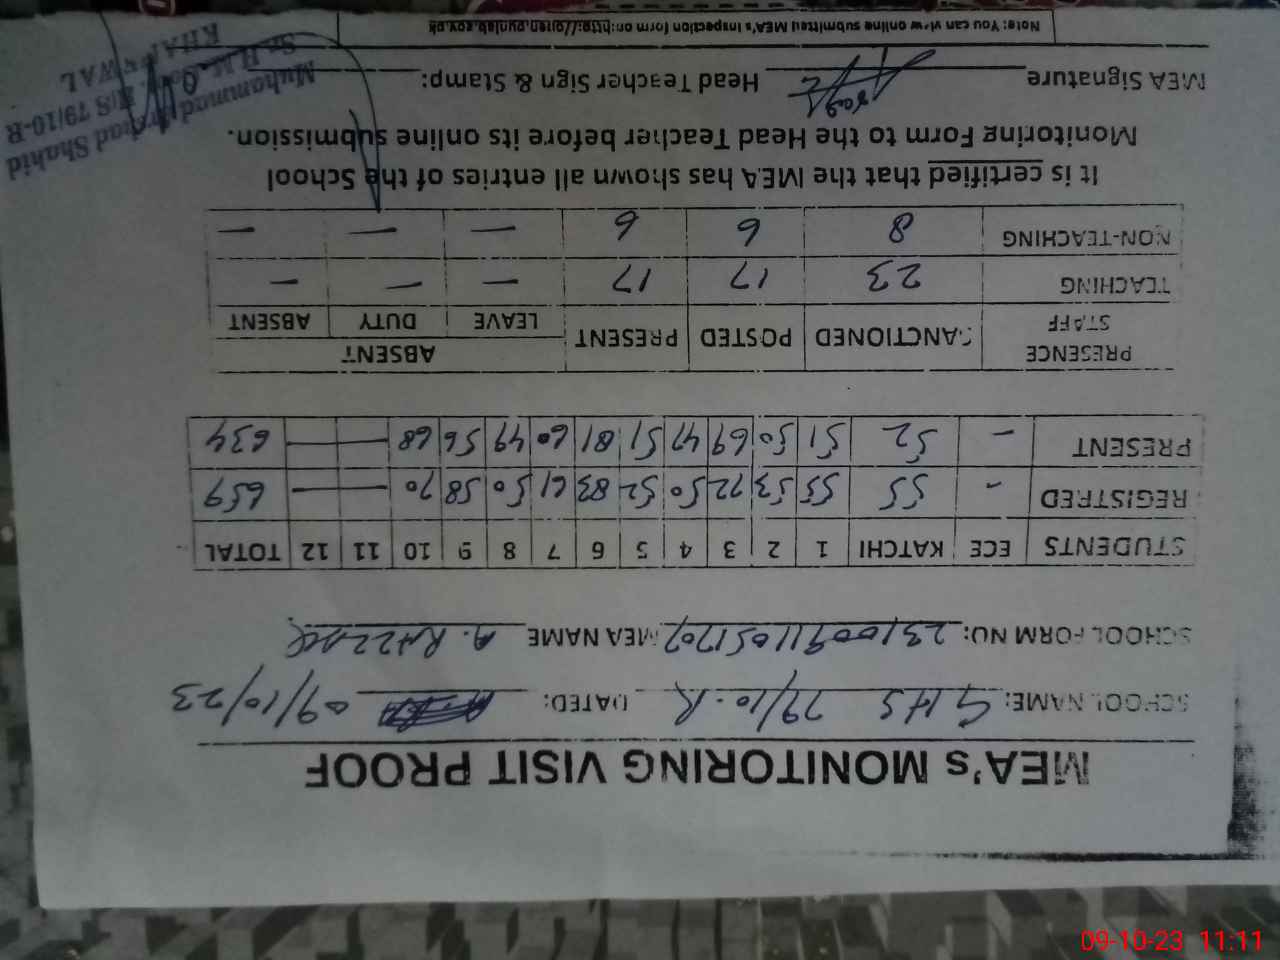 MEA's MONITORING VISIT PROOF
SCHOOL NAME: GHS 79/10-R DATED: 09/10/23
SCHOOL FORM NO: 23100911051707 MEA NAME A. RAZZAQ
STUDENTS ECE KATCHI 1 2 3 4 5 6 7 8 9 10 11 12 TOTAL
REGISTRED - 55 55 53 72 50 52 83 61 50 58 70 — — 659
PRESENT - 52 51 50 69 47 51 81 60 49 56 68 — — 634
PRESENCE STAFF SANCTIONED POSTED PRESENT ABSENT
LEAVE DUTY ABSENT
TEACHING 23 17 17 — — —
NON-TEACHING 8 6 6 — — —
It is certified that the MEA has shown all entries of the School
Monitoring Form to the Head Teacher before its online submission.
MEA Signature Head Teacher Sign & Stamp:
Muhammad Shahid
79/10-R
Note: You can view online submitted MEA's inspection form on:http://open.punjab.gov.pk
09-10-23 11:11